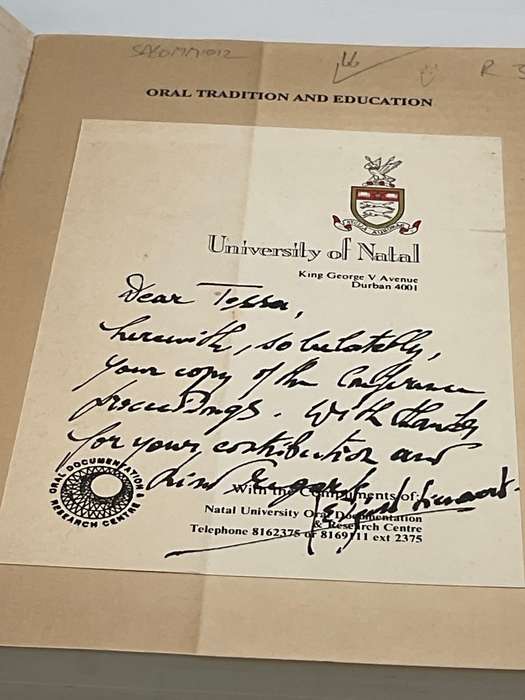 SABOMM1012
R 3
ORAL TRADITION AND EDUCATION
STELLA AURORAE
University of Natal
King George V Avenue
Durban 4001
Dear Tessa,
herewith, so belatedly,
your copy of the Conference
proceedings. With thanks
for your contribution and
kind regards
ORAL DOCUMENTATION & RESEARCH CENTRE
With the Compliments of:
Natal University Oral Documentation
& Research Centre
Telephone 8162375 or 8169111 ext 2375